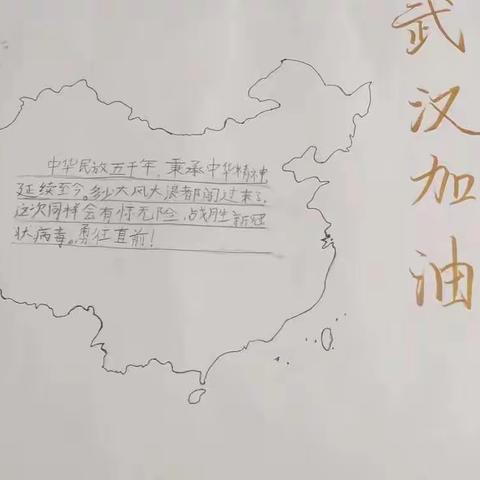 中华民族五千年，秉承中华精神
延续至今。多少大风大浪都闯过来了，
这次同样会有惊无险，战胜新冠
状病毒。勇往直前！
武汉加油